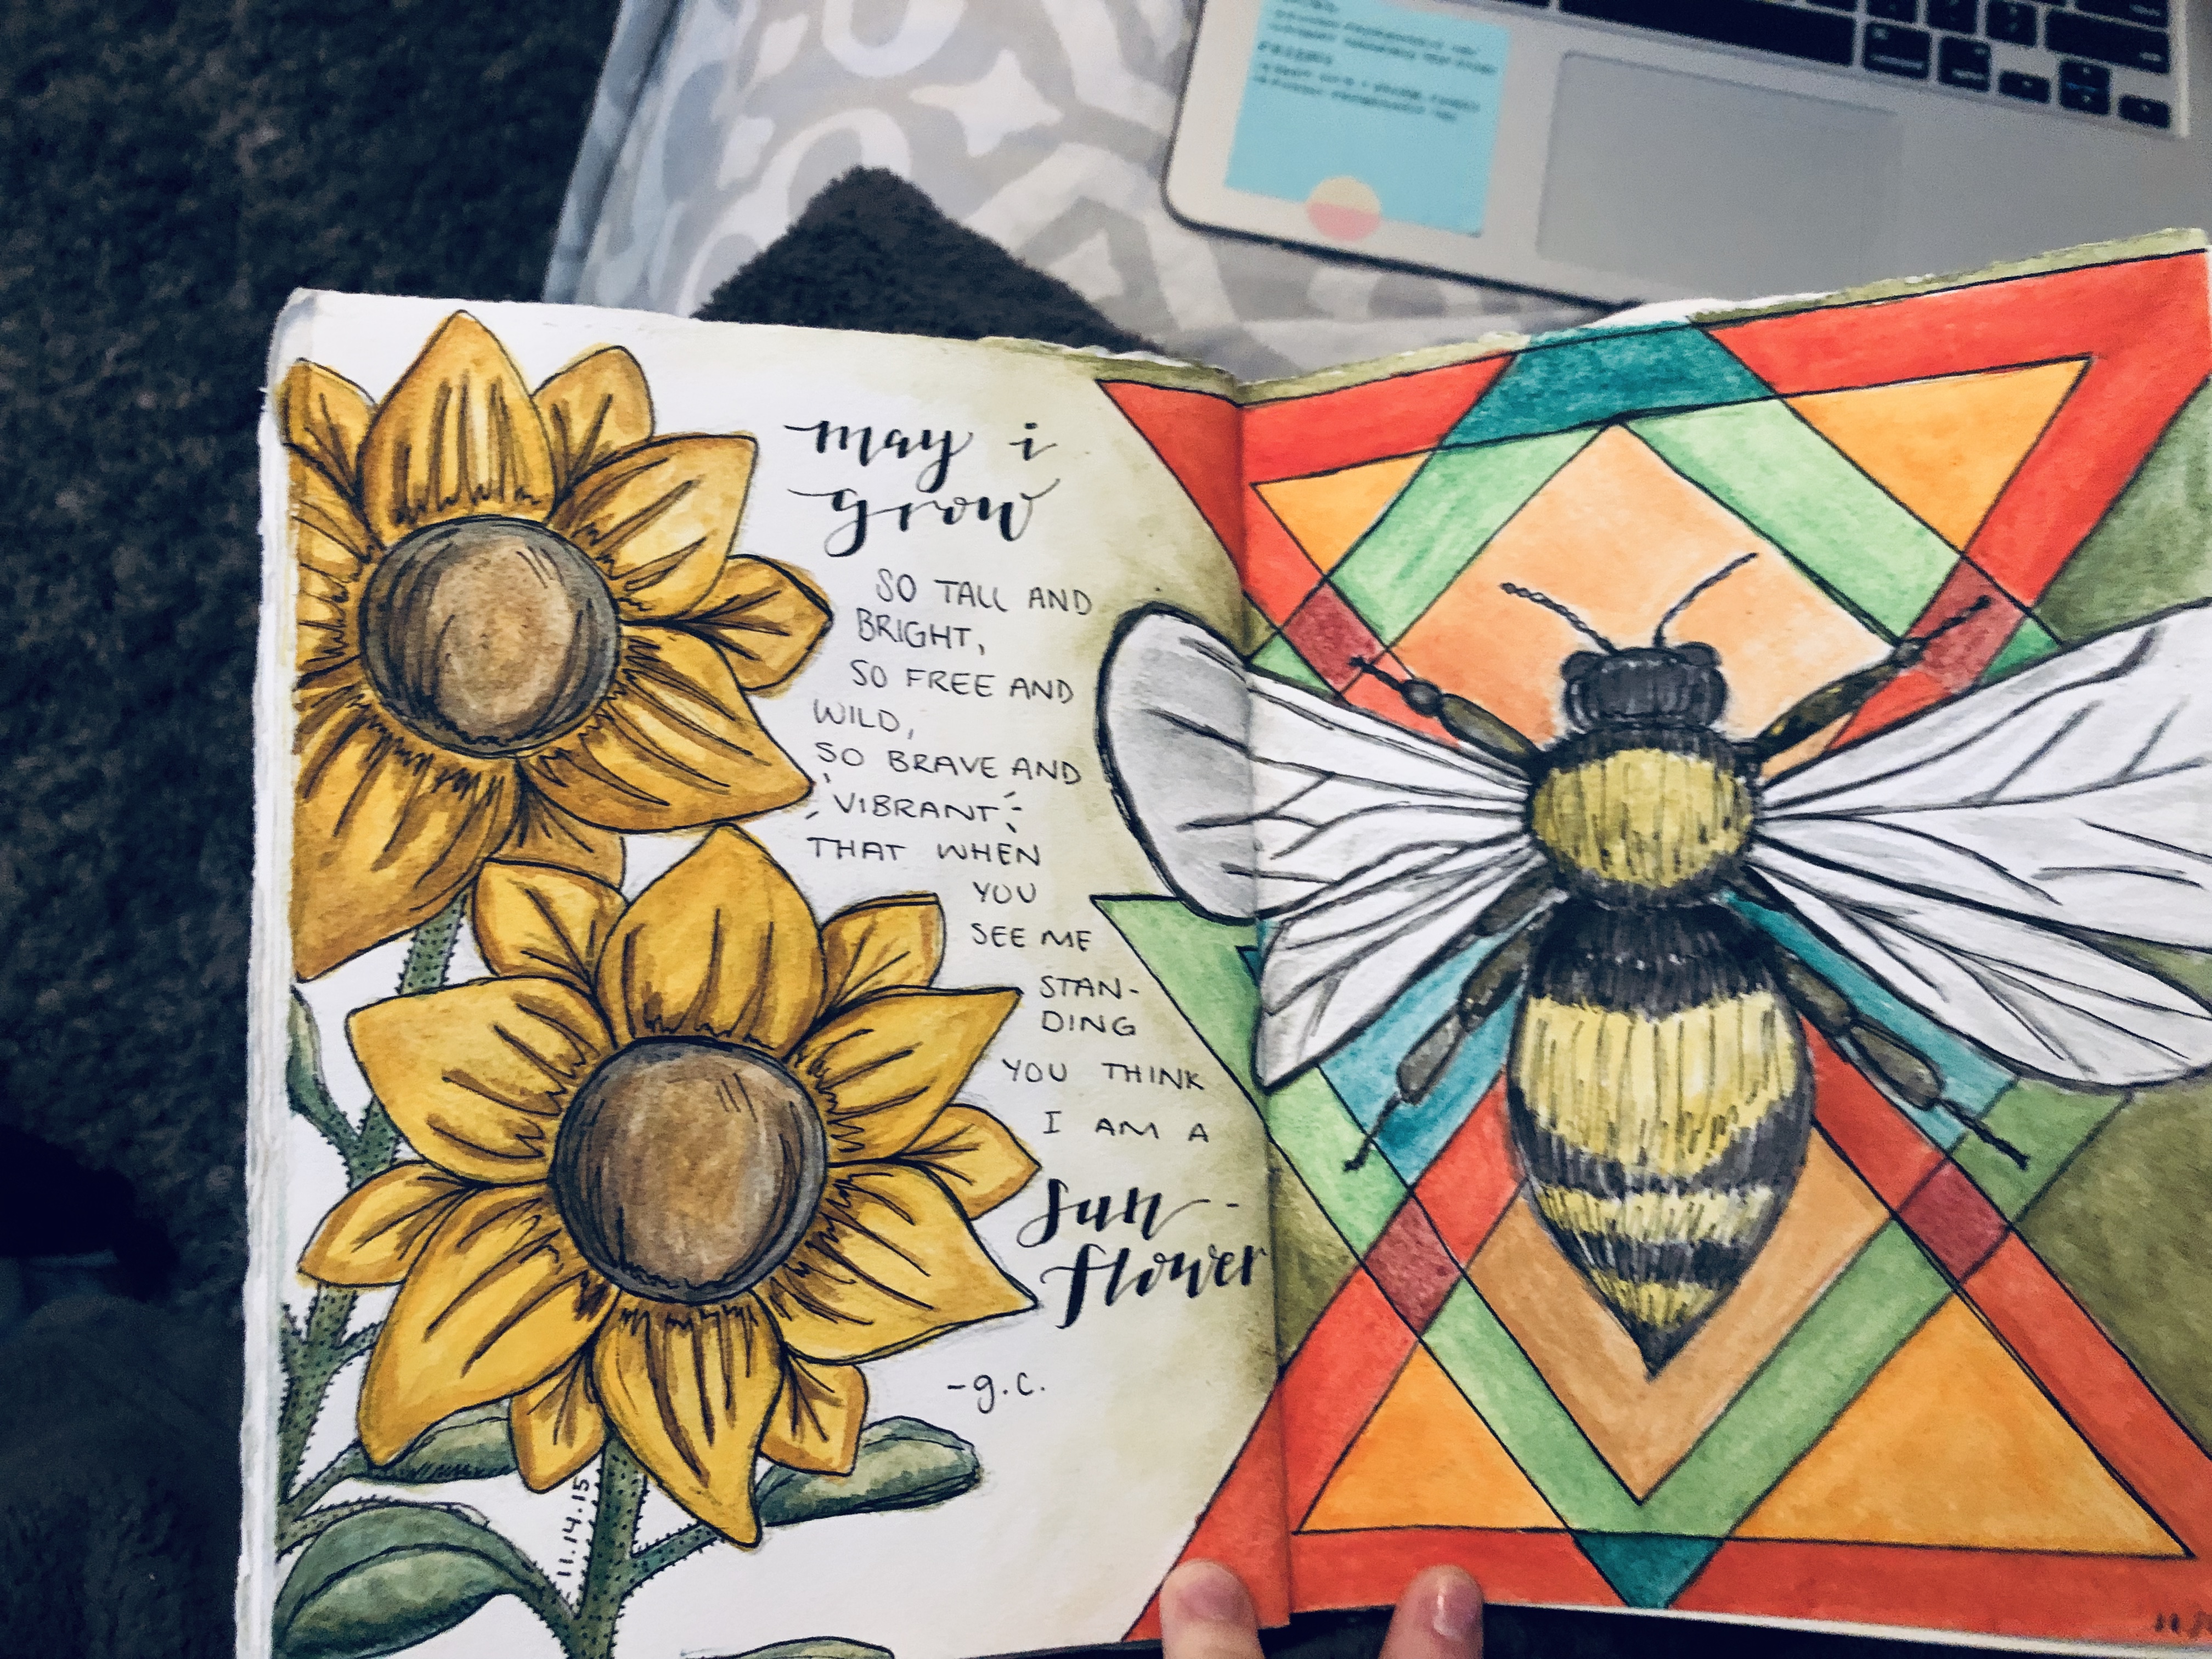 may i
grow
SO TALL AND
BRIGHT,
SO FREE AND
WILD,
SO BRAVE AND
VIBRANT
THAT WHEN
YOU
SEE ME
STAN-
DING
YOU THINK
I AM A
sun-
flower
-g.c.
11.14.15